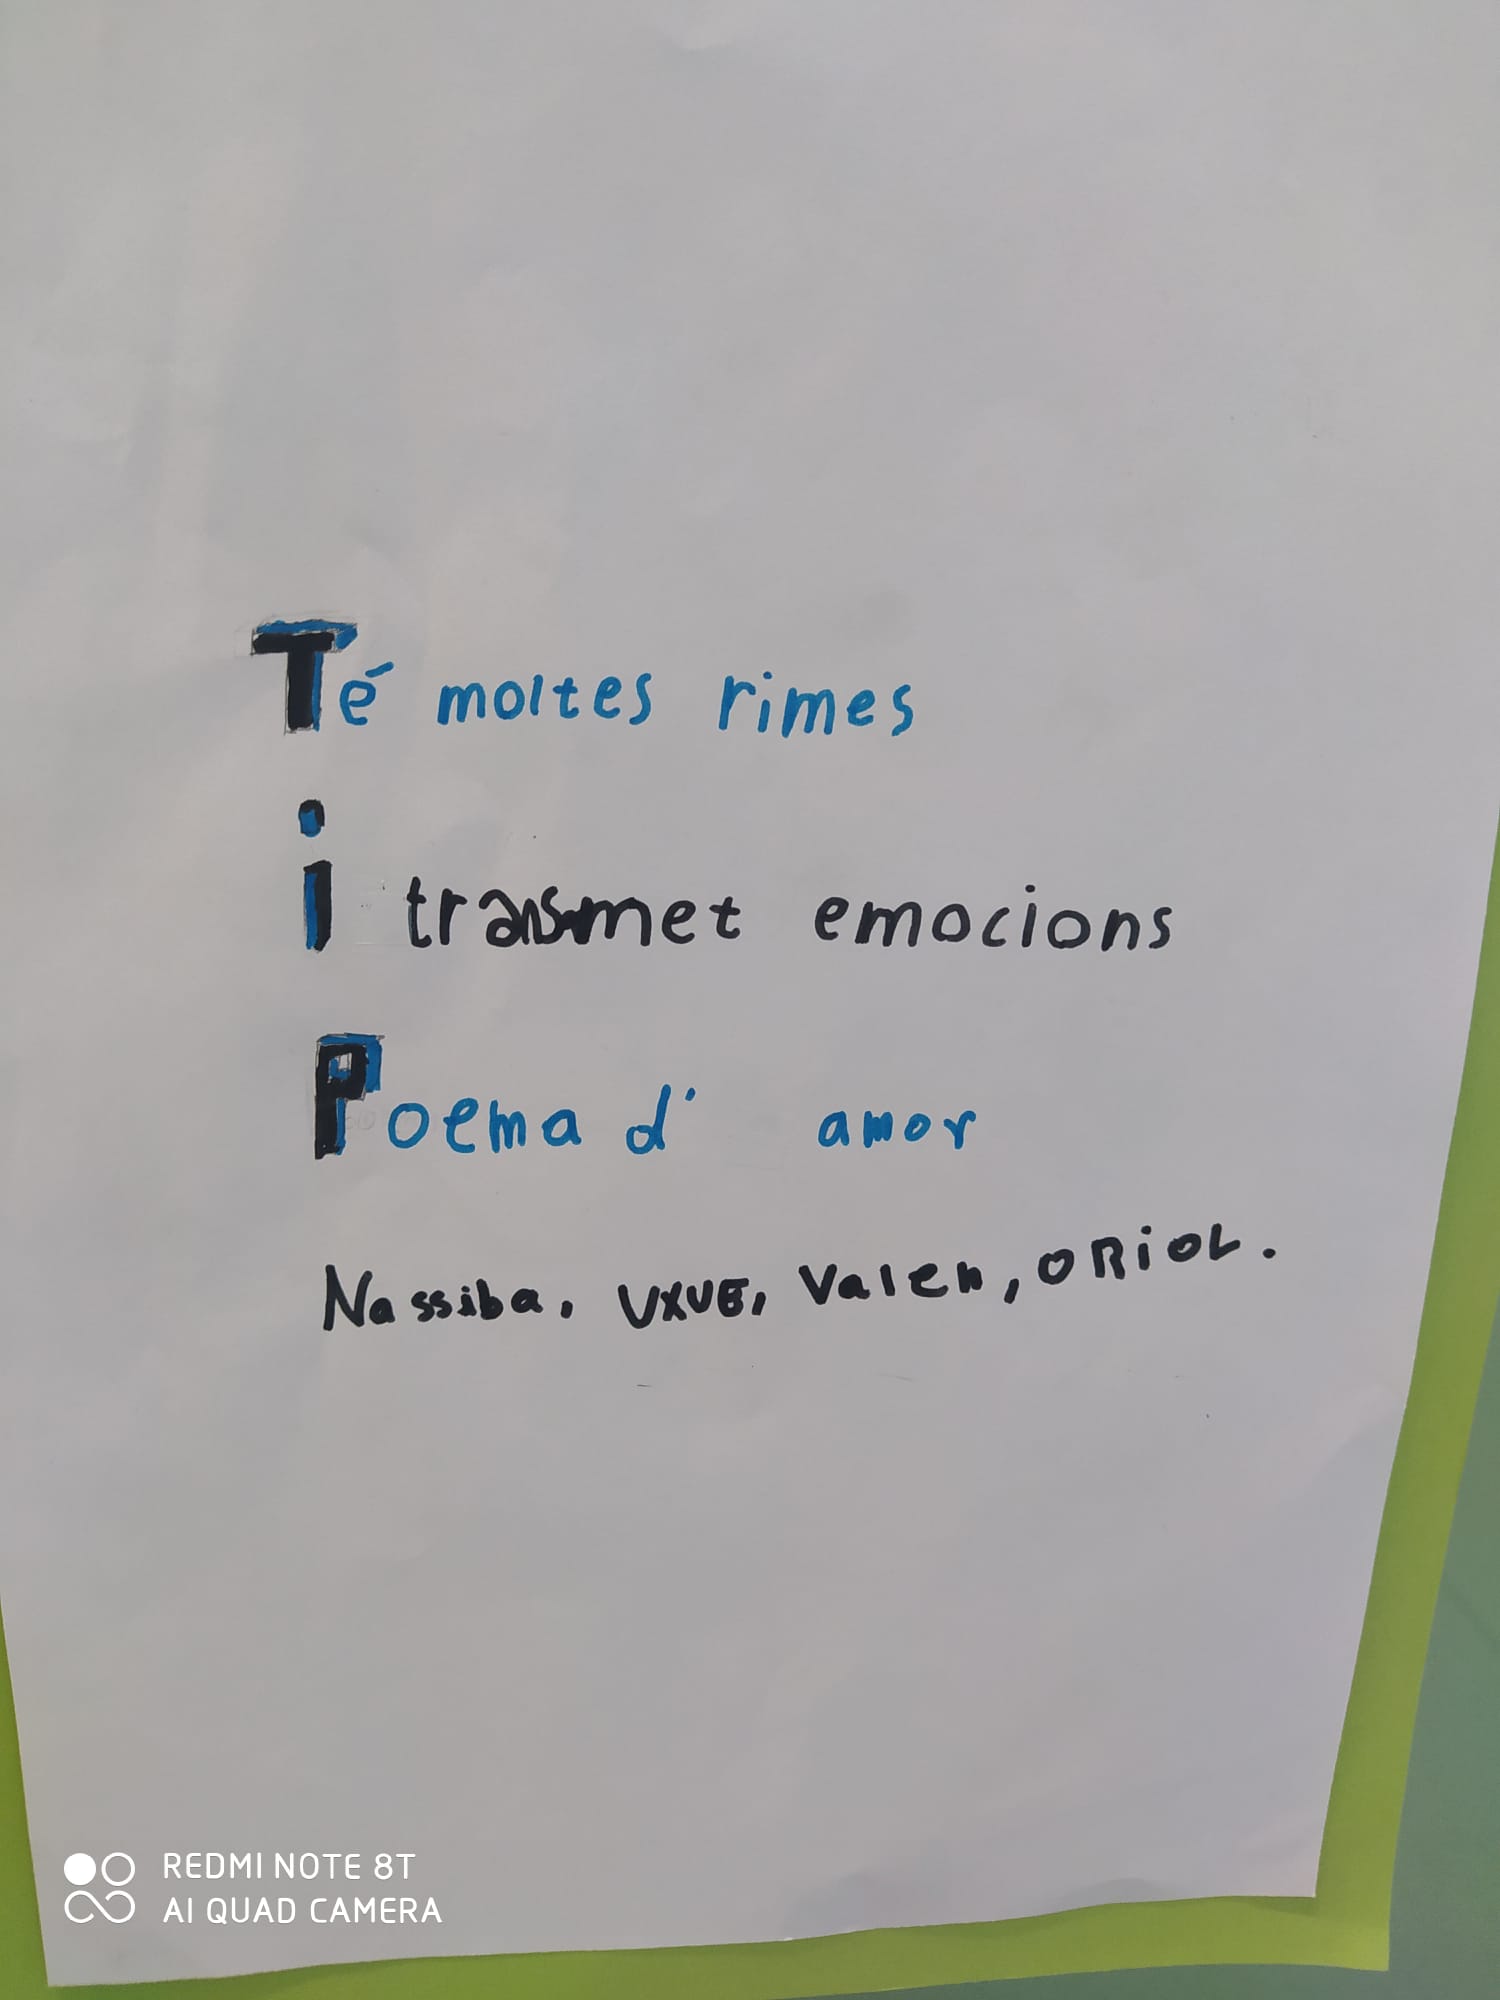 Té moltes rimes
i transmet emocions
Poema d' amor
Nassiba, UXUE, Valen, ORiOL.
REDMI NOTE 8T
AI QUAD CAMERA